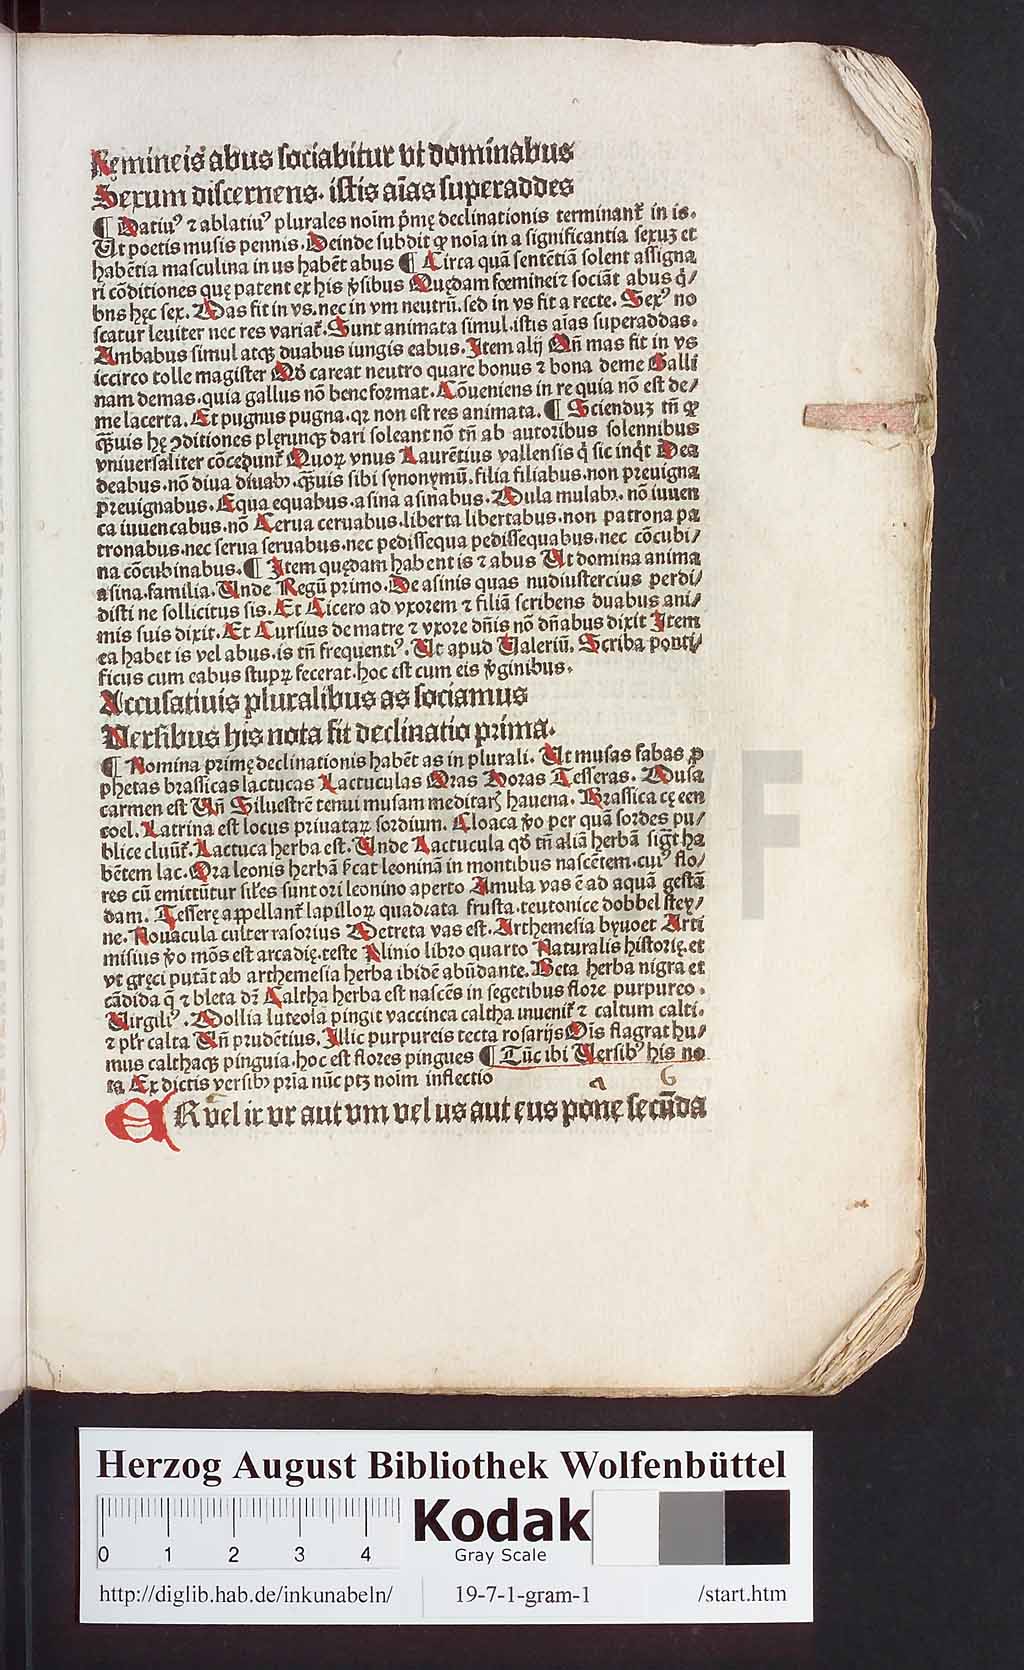 Femineis abus sociabitur vt dominabus
Sexum discernens. istis aīas superaddes
¶ Datiuꝰ ⁊ ablatiuꝰ plurales noīm pͥmę declinationis terminant᷑ in is.
Ut poetis musis pennis. Deinde subdit ꝙ noīa in a significantia sexuꝫ et
habētia masculina in us habēt abus ¶ Circa quā sentētiā solent assigna
ri cōditiones quę patent ex his v̓sibus Quędam fœmineis sociāt abus q̇/
bus hęc sex. Mas fit in vs. nec in vm neutrū. sed in vs fit a recte. Sexꝰ no
scatur leuiter nec res variat᷑. Sunt animata simul. istis aīas superaddas.
Ambabus simul atqꝫ duabus iungis eabus. Item alij Qn̄ mas fit in vs
iccirco tolle magister Qđ careat neutro quare bonus ⁊ bona deme Galli
nam demas. quia gallus nō bene format. Cōueniens in re quia nō est de/
me lacerta. Et pugnus pugna. qꝛ non est res animata. ¶ Scienduꝫ tn̄ ꝙ
qͣ̄uis hę ꝯditiones plęrunqꝫ dari soleant nō tn̄ ab autoribus solennibus
vniuersaliter cōcedunt᷑ Quoꝝ vnus Laurētius vallensis q̇ sic inq̇t Dea
deabus. nō diua diuabꝫ. qͣ̄uis sibi synonymū. filia filiabus. non preuigna
preuignabus. Equa equabus. asina asinabus. Mula mulabꝫ. nō iuuen
ca iuuencabus. nō Cerua ceruabus. liberta libertabus. non patrona pa
tronabus. nec serua seruabus. nec pedissequa pedissequabus. nec cōcubi/
na cōcubinabus. ¶ Item quędam habent is ⁊ abus Ut domina anima
asina. familia. Unde Regū primo. De asinis quas nudiustercius perdi/
disti ne sollicitus sis. Et Cicero ad vxorem ⁊ filiā scribens duabus ani/
mis suis dixit. Et Cursius de matre ⁊ vxore dn̄is nō dn̄abus dixit Item
ea habet is vel abus. is tn̄ frequentiꝰ. Ut apud Valeriū. Scriba ponti/
ficus cum eabus stupꝝ fecerat. hoc est cum eis v̓ginibus.
Accusatiuis pluralibus as sociamus
Versibus his nota fit declinatio prima.
¶ Nomina primę declinationis habēt as in plurali. Ut musas fabas ꝓ
phetas brassicas lactucas Lactuculas Oras Horas Tesseras. Musa
carmen est Un̄ Siluestrē tenui musam meditarꝫ hauena. Brassica cę een
coel. Latrina est locus priuataꝝ sordium. Cloaca v̓o per quā sordes pu/
blice cluūt᷑. Lactuca herba est. Unde Lactucula qđ tn̄ aliā herbā sig̅t ha
bētem lac. Ora leonis herbā sͥcat leoninā in montibus nascētem. cuiꝰ flo/
res cū emittūtur sil̓es sunt ori leonino aperto Amula vas ē ad aquā gestā
dam. Tesserę appellant᷑ lapilloꝝ quadrata frusta. teutonice dobbel stey/
ne. Nouacula culter rasorius Metreta vas est. Arthemesia byuoet Arti
misius v̓o mōs est arcadię. teste Plinio libro quarto Naturalis historię. et
vt gręci putāt ab arthemesia herba ibidē abūdante. Beta herba nigra et
cādida q̄ ⁊ bleta dꝛ Caltha herba est nascēs in segetibus flore purpureo.
Virgiliꝰ. Mollia luteola pingit vaccinea caltha inuenit᷑ ⁊ caltum calti.
⁊ pl̓r calta Un̄ prudētius. Illic purpureis tecta rosarijs Ois flagrat hu/
mus calthaqꝫ pinguia. hoc est flores pingues ¶ Tūc ibi Versibꝰ his no
ta Ex dictis versibꝫ pria nūc ptꝫ noīm inflectio
a 6
ER vel ir vr aut vm vel us aut eus pone secūda
Herzog August Bibliothek Wolfenbüttel
0 1 2 3 4
Kodak
Gray Scale
http://diglib.hab.de/inkunabeln/ 19-7-1-gram-1 /start.htm